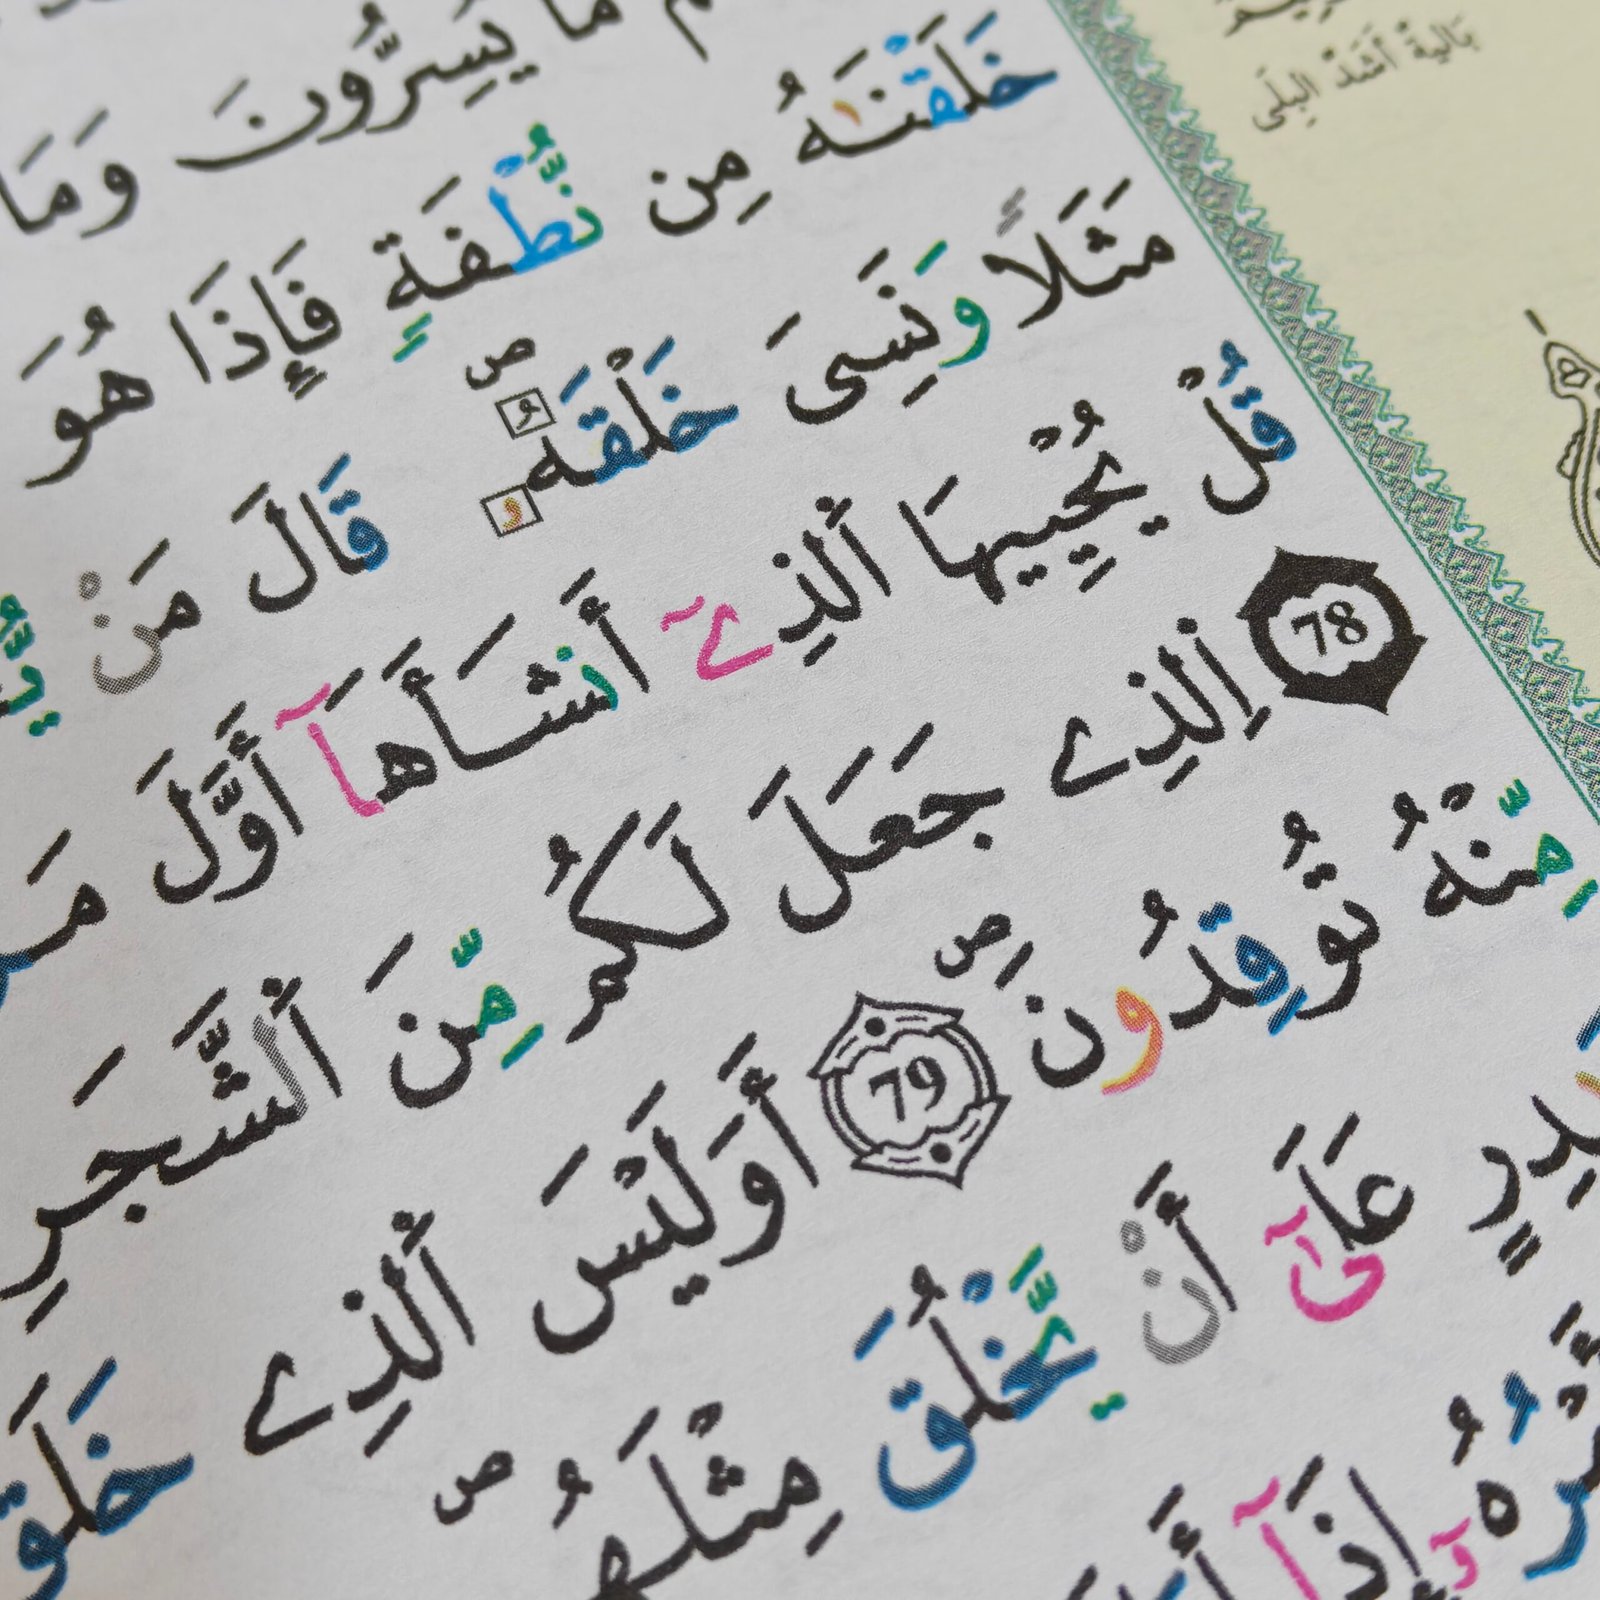 مَا يُسِرُّونَ وَمَا
خَلَقْنَٰهُ مِن نُّطْفَةٍ فَإِذَا هُوَ
مَثَلًا وَنَسِيَ خَلْقَهُۥ ۖ قَالَ مَنْ
قُلْ يُحْيِيهَا اَ۬لذِےٓ أَنشَأَهَآ أَوَّلَ
78 اِ۬لذِے جَعَلَ لَكُم مِّنَ اَ۬لشَّجَرِ
مِّنْهُ تُوقِدُونَۖ 79 أَوَلَيْسَ اَ۬لذِے خَلَقَ
عَلَىٰٓ أَنْ يَّخْلُقَ مِثْلَهُم
بَالِيةٌ أَشَدَّ البِلَى